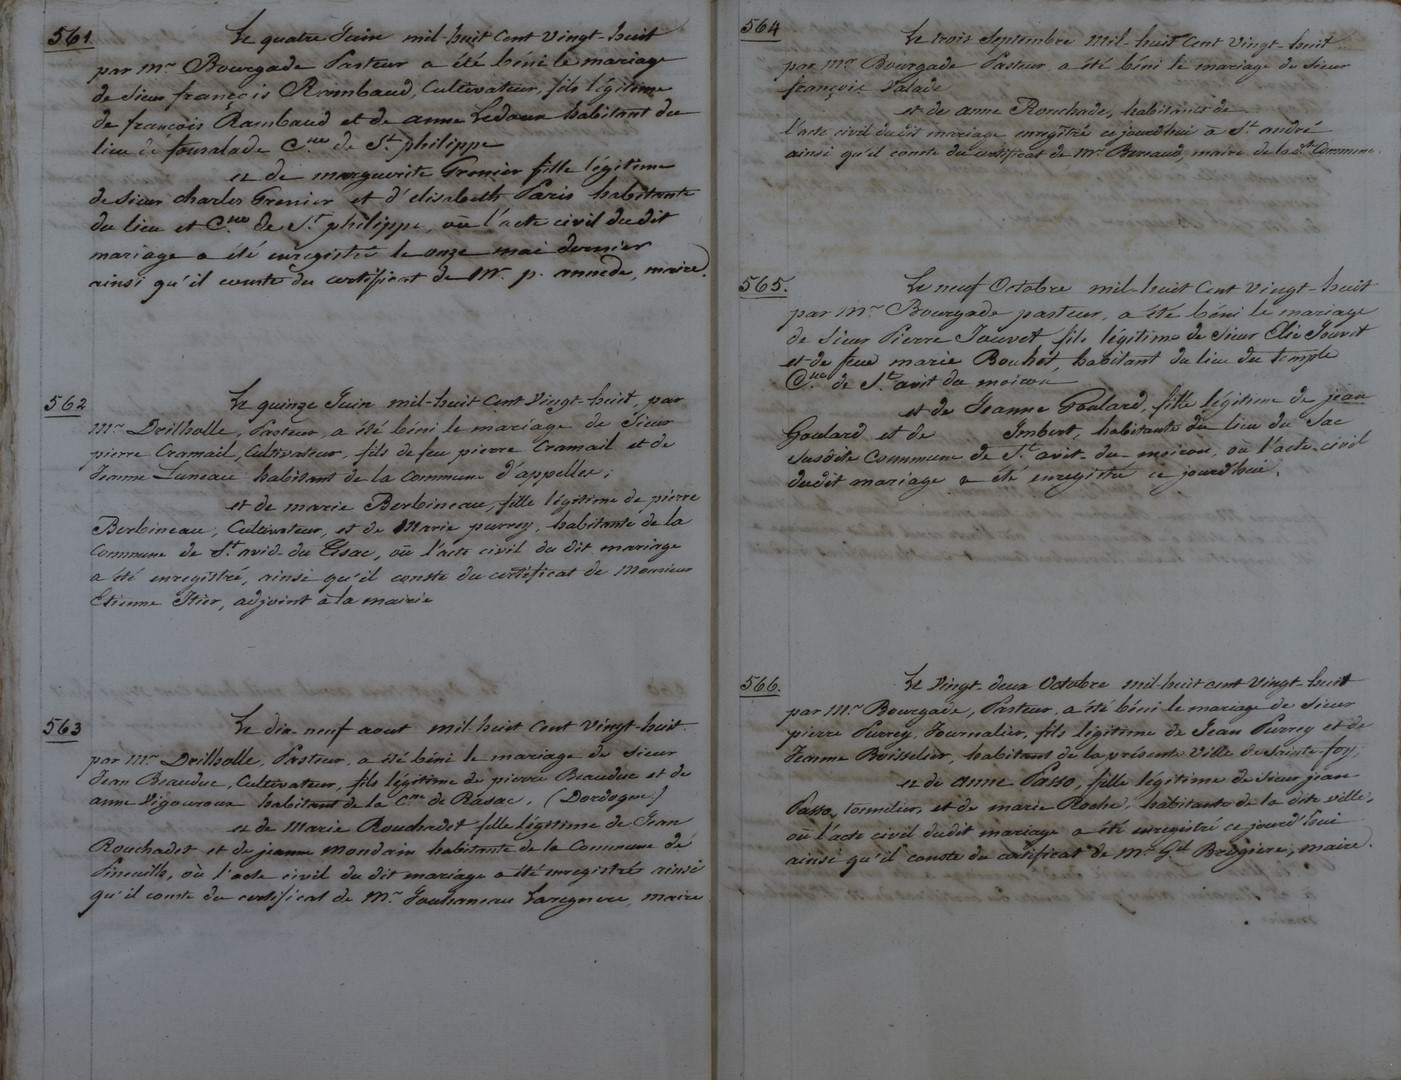 561
Le quatre Juin mil-huit Cent Vingt-huit
par mr Bourgade Pasteur a été béni le mariage
de Sieur françois Rambaud, Cultivateur, fils légitime
de françois Rambaud et de anne Ledoux habitant du
lieu de Cne de St philippe
et de marguerite Grenier fille légitime
de Sieur charles Grenier et d'élisabeth Paris habitante
du lieu et Cne de St philippe, où l'acte civil du dit
mariage a été enregistré le onze mai dernier
ainsi qu'il conste du certificat de Mr. p. maire.
562
Le quinze Juin mil-huit Cent Vingt-huit, par
Mr Drilholle, Pasteur, a été béni le mariage de Sieur
pierre Cramail, Cultivateur, fils de feu pierre Cramail et de
Jeanne Luneau habitant de la Commune d'appelles;
et de marie Berbineau, fille légitime de pierre
Berbineau, Cultivateur, et de Marie purrey, habitante de la
Commune de St avid du où l'acte civil du dit mariage
a été enregistré, ainsi qu'il conste du certificat de Monsieur
Etienne Itier, adjoint à la mairie
563
Le dix neuf aout mil-huit Cent Vingt-huit.
par mr Drilholle, Pasteur, a été béni le mariage de Sieur
Jean Beauduc, Cultivateur, fils légitime de pierre Beauduc et de
anne Vigouroux habitant de la Cne de Rasac, (Dordogne)
et de Marie Rouchadet fille légitime de Jean
Rouchadet et de jeanne Mondain habitante de la Commune de
Pineuilh, où l'acte civil du dit mariage a été enregistré ainsi
qu'il conste du certificat de Mr Jouhaneau Laregnere, maire
564
Le trois Septembre Mil-huit Cent Vingt-huit
par mr Bourgade Pasteur a été béni le mariage de Sieur
françois Valade
et de anne Rouchade, habitants de
l'acte civil du dit mariage enregistré ce jourd'hui à St andré
ainsi qu'il conste du certificat de Mr maire de la dte Commune.
565.
Le neuf Octobre mil-huit Cent Vingt-huit
par mr Bourgade pasteur, a été béni le mariage
de Sieur Pierre Jouvet fils légitime de Sieur Elie Jouvet
et de feue marie Bouhet, habitant du lieu du temple
Cne de St avit du moiron
et de Jeanne Goulard, fille légitime de jean
Goulard et de Imbert, habitante du lieu du Sac
Susdite Commune de St avit-du-moiron, où l'acte civil
dudit mariage a été enregistré ce jourd'hui.
566.
Le Vingt-deux Octobre mil-huit cent Vingt-huit
par Mr Bourgade, Pasteur, a été béni le mariage de Sieur
pierre Purrey, Journalier, fils légitime de Jean Purrey et de
Jeanne Boisselier, habitant de la présente Ville de Sainte-foy;
et de anne Passo, fille légitime de Sieur jean
Passo, tonnelier, et de marie Roche, habitante de la dite ville,
où l'acte civil dudit mariage a été enregistré ce jourd'hui
ainsi qu'il conste du certificat de Mr Gal Brugiere, maire.